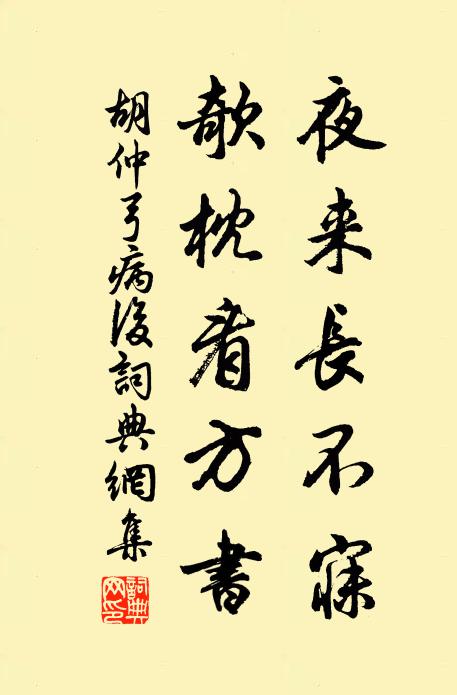 夜来長不寐
欹枕看方書
胡仲弓病後詞典網集
詞典網印